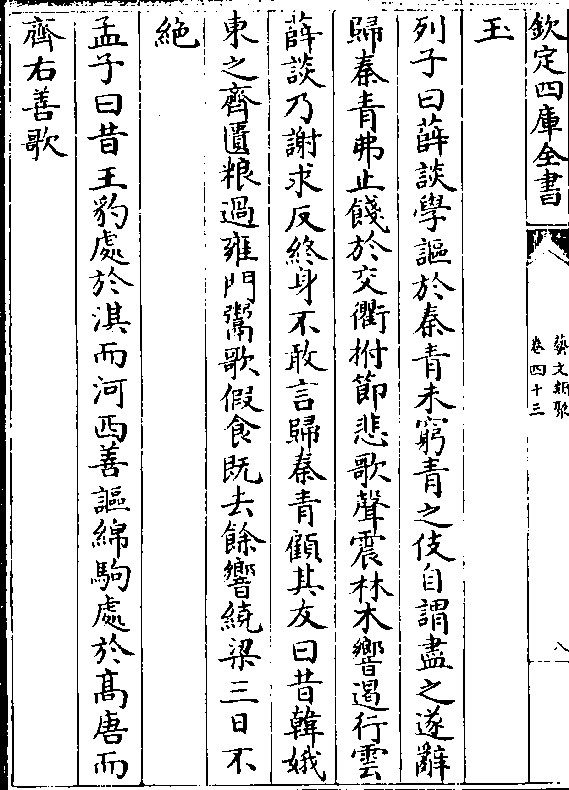 欽定四庫全書
藝文類聚
卷四十三
八
玉
列子曰薛談學謳於秦青未窮青之伎自謂盡之遂辭
歸秦青弗止餞於交衢拊節悲歌聲震林木響遏行雲
薛談乃謝求反終身不敢言歸秦青顧其友曰昔韓娥
東之齊匱粮過雍門鬻歌假食既去餘響繞梁三日不
絶
孟子曰昔王豹處於淇而河西善謳綿駒處於髙唐而
齊右善歌